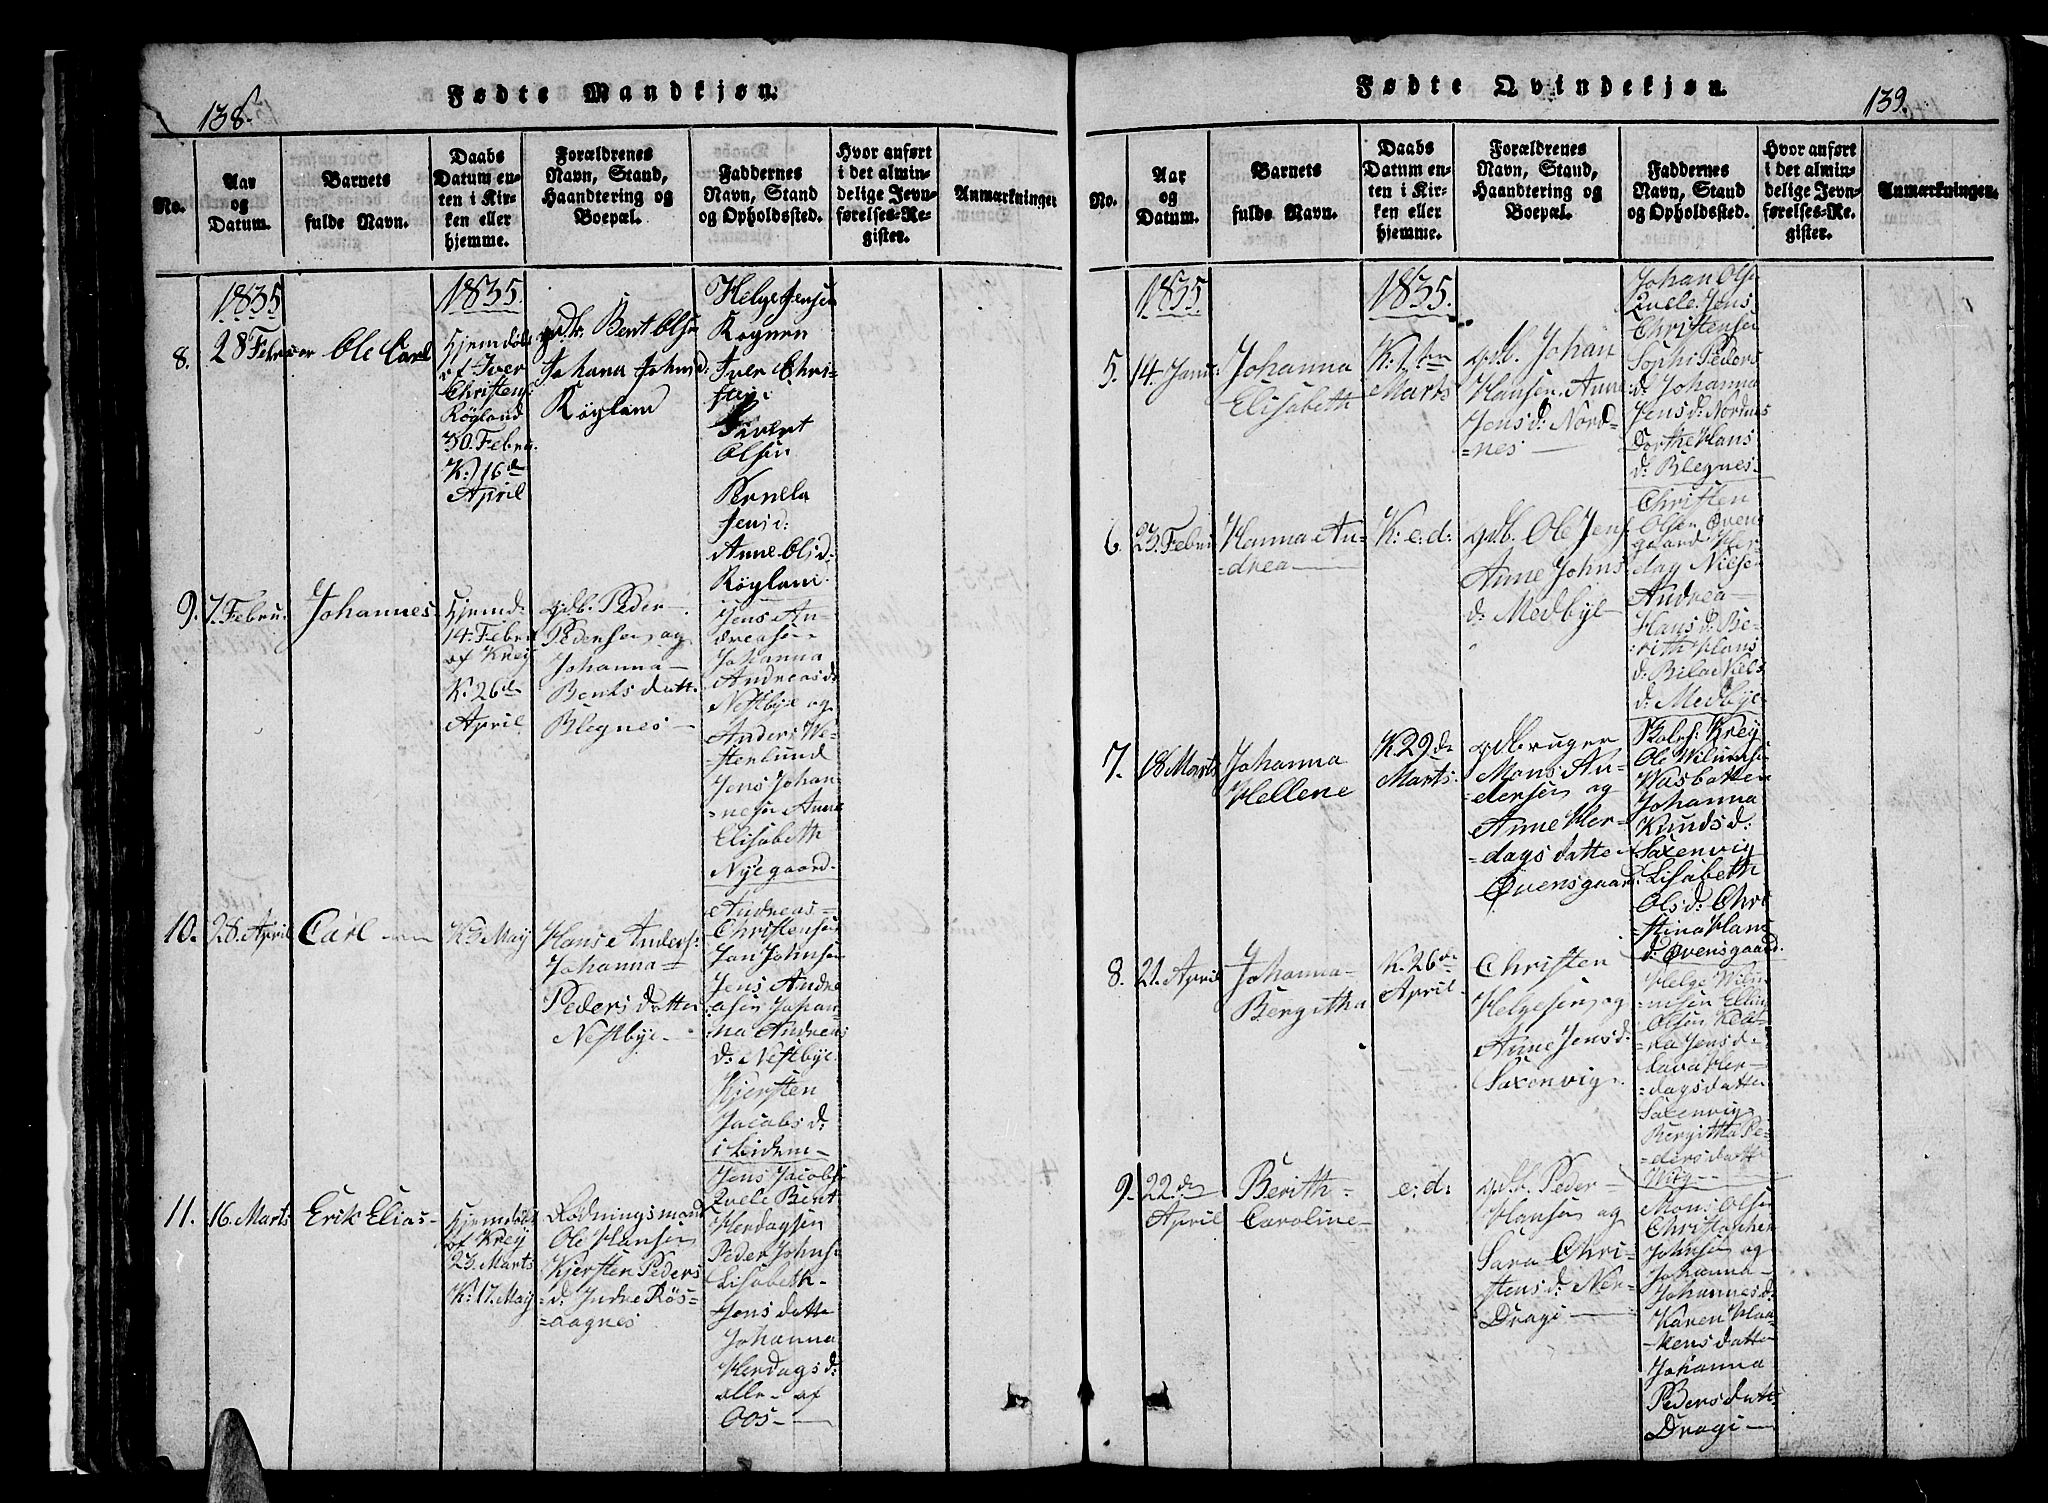 138.
Fødte Mandkjøn.
No.
Aar
og
Datum.
Barnets
fulde Navn.
Daabs
Datum en-
ten i Kir-
ken eller
hjemme.
Forældrenes
Navn, Stand,
Haandtering og
Boepæl.
Faddernes
Navn, Stand
og Opholdssted.
Hvor anført
i det almin-
delige Jevn-
førelses-Re-
gister.
Anmærkninger
1835
8. 28 Febru
Ole Carl
1835.
Hjemdøbt
af Iver
Christens:
Røgland
30. Febru.
K: 16de
April
gdb. Bent Olsen
Johana Johnsd:
Røgland
Helge Jensen
Rognen
Iver Chri-
Sivert
Olsen
Pernela
Jensd:
Anne Olsd:
Røgland.
9. 7. Febru.
Johannes
Hjemd.
14. Febru
af Krey
K: 26de
April
gdb. Peder
Pedersen og
Johanna
Bentsdatt.
Blegnes
Jens An-
dreasen
Johanna
Andreasd:
Nestbye og
Anders We-
stenlund
Jens Johan-
=nesen Anne
Elisabeth
Nyegaard.
10. 28. April
Carl
K3 May
Hans Anders:
Johanna
Pedersdatter
Nestbye
Andreas
Christensen
Jan Johnsen
Jens Andre
asen Johan-
na Andreas
d: Nestbye
Kjersten
Jacobsd:
i Leiden
11. 16. Marts
Erik Elias
Hjemdøbt
af Krey
23. Marts
K: 17. May
Rødningsmand
Ole Hansen
Kjersten Peders
=d: Indre Røs-
=aagnes
Jens Jacobs
Qvele Bent
Herdagsen
Peder Johns:
Lisabeth
Jensdatter
Johanna
Herdagsd:
alle af
Oos
Fødte Qvindekjøn.
139.
No.
Aar
og
Datum.
Barnets
fulde Navn.
Daabs
Datum en-
ten i Kir-
ken eller
hjemme.
Forældrenes
Navn, Stand,
Haandtering og
Boepæl.
Faddernes
Navn, Stand
og Opholdssted.
Hvor anført
i det almin-
delige Jevn-
førelses-Re.
gister.
Anmærkninger.
1835
5. 14. Janu:
Johanna
Elisabeth
1835.
K: 1ten
Marts
gdb. Johan
Hansen. Anne
Jensd: Nord-
=nes
Johan Olsen
Qvele. Jens
Christensen
Sophi Peders
d: Johanna
Jensd: Nordnes
Dorthe Hans
d: Blegnes.
6. 23. Febru
Hanna An-
=drea
K: e: d:
gdb. Ole Jens
Anne Johns
d: Medbye
Christen
Olsen Øvens
gaard Her-
dag Nilsen
Andrea
Hansd: Be-
rith Hans
d: Bila Niels
d: Medbye
7. 18 Marts
Johanna
Hellene
K29de
Marts
gdbruger
Mons An-
=dersen og
Anne Her-
=dagsdatter
Øvensgaard
Ole
Johanna
Knudsd:
Saxenvig
Lisabeth
Olsd: Chri
stina Hans
d: Øvensgaard.
8. 21. April
Johanna
Bergitha
K: 26de
April
Christen
Helgesen og
Anne Jensd:
Saxenvig
Helge
Olsen
Jensd:
Her-
=dagsdatter
Saxenvig
Bergitha Pe-
dersdatter
Wiig
9. 22.de
April
Berith
Caroline
e: d:
gdb. Peder
Hansen og
Sara Chri-
stensd: Ner-
Dragi
Mons Olsen
Christopher
Johnsen og
Johanna
Johannesd:
Karen Haa-
kensdatter
Johanna
Pedersdatt:
Dragi